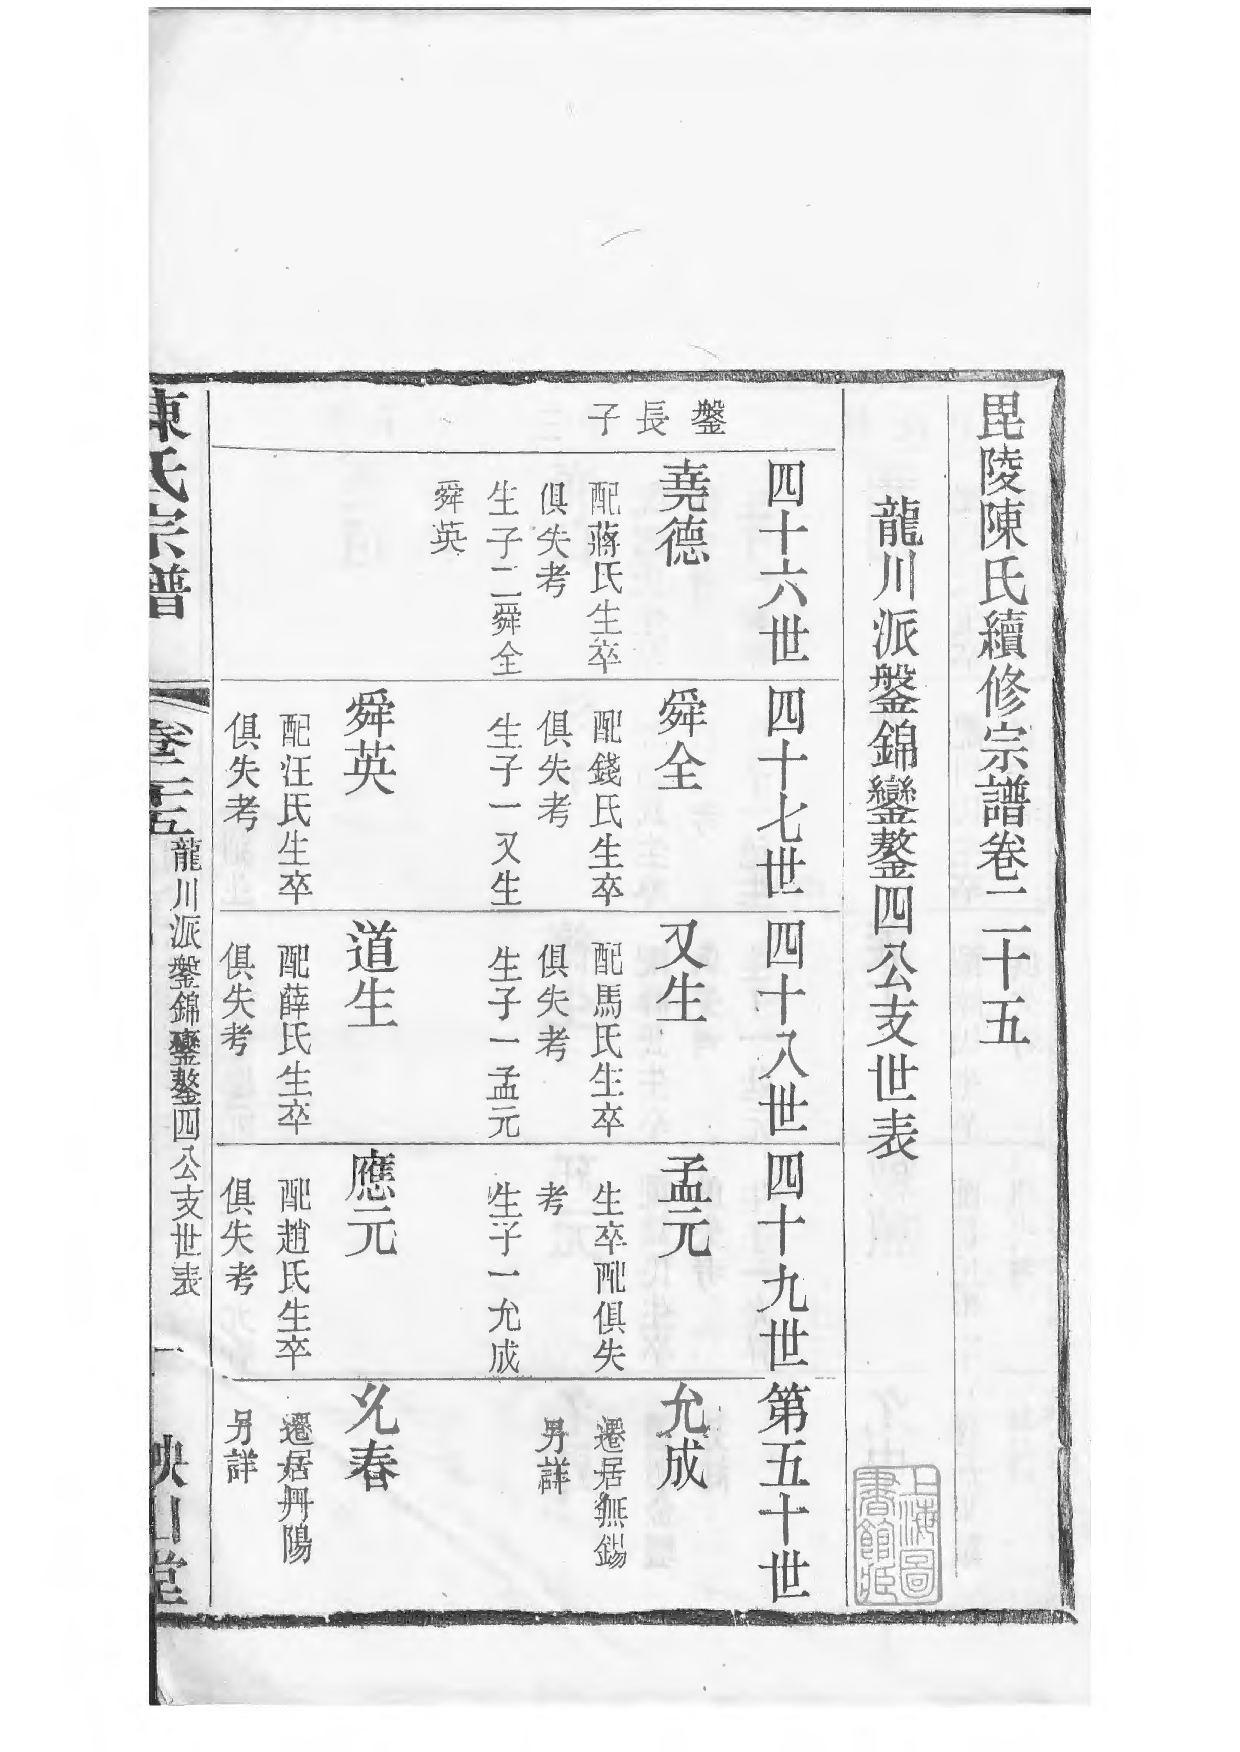 毘陵陳氏續修宗譜卷二十五
龍川派鎜錦鑾鏊四公支世表
鎜長子
四十六世
堯德
配蔣氏生卒
俱失考
生子二舜全
舜英
四十七世
舜全
配錢氏生卒
俱失考
生子一又生
舜英
配汪氏生卒
俱失考
四十八世
又生
配馬氏生卒
俱失考
生子一孟元
道生
配薛氏生卒
俱失考
四十九世
孟元
生卒配俱失
考
生子一允成
應元
配趙氏生卒
俱失考
第五十世
允成
遷居無錫
另詳
允春
遷居丹陽
另詳
陳氏宗譜
卷二十五
龍川派鎜錦鑾鏊四公支世表
一
映山堂
上海圖
書館藏